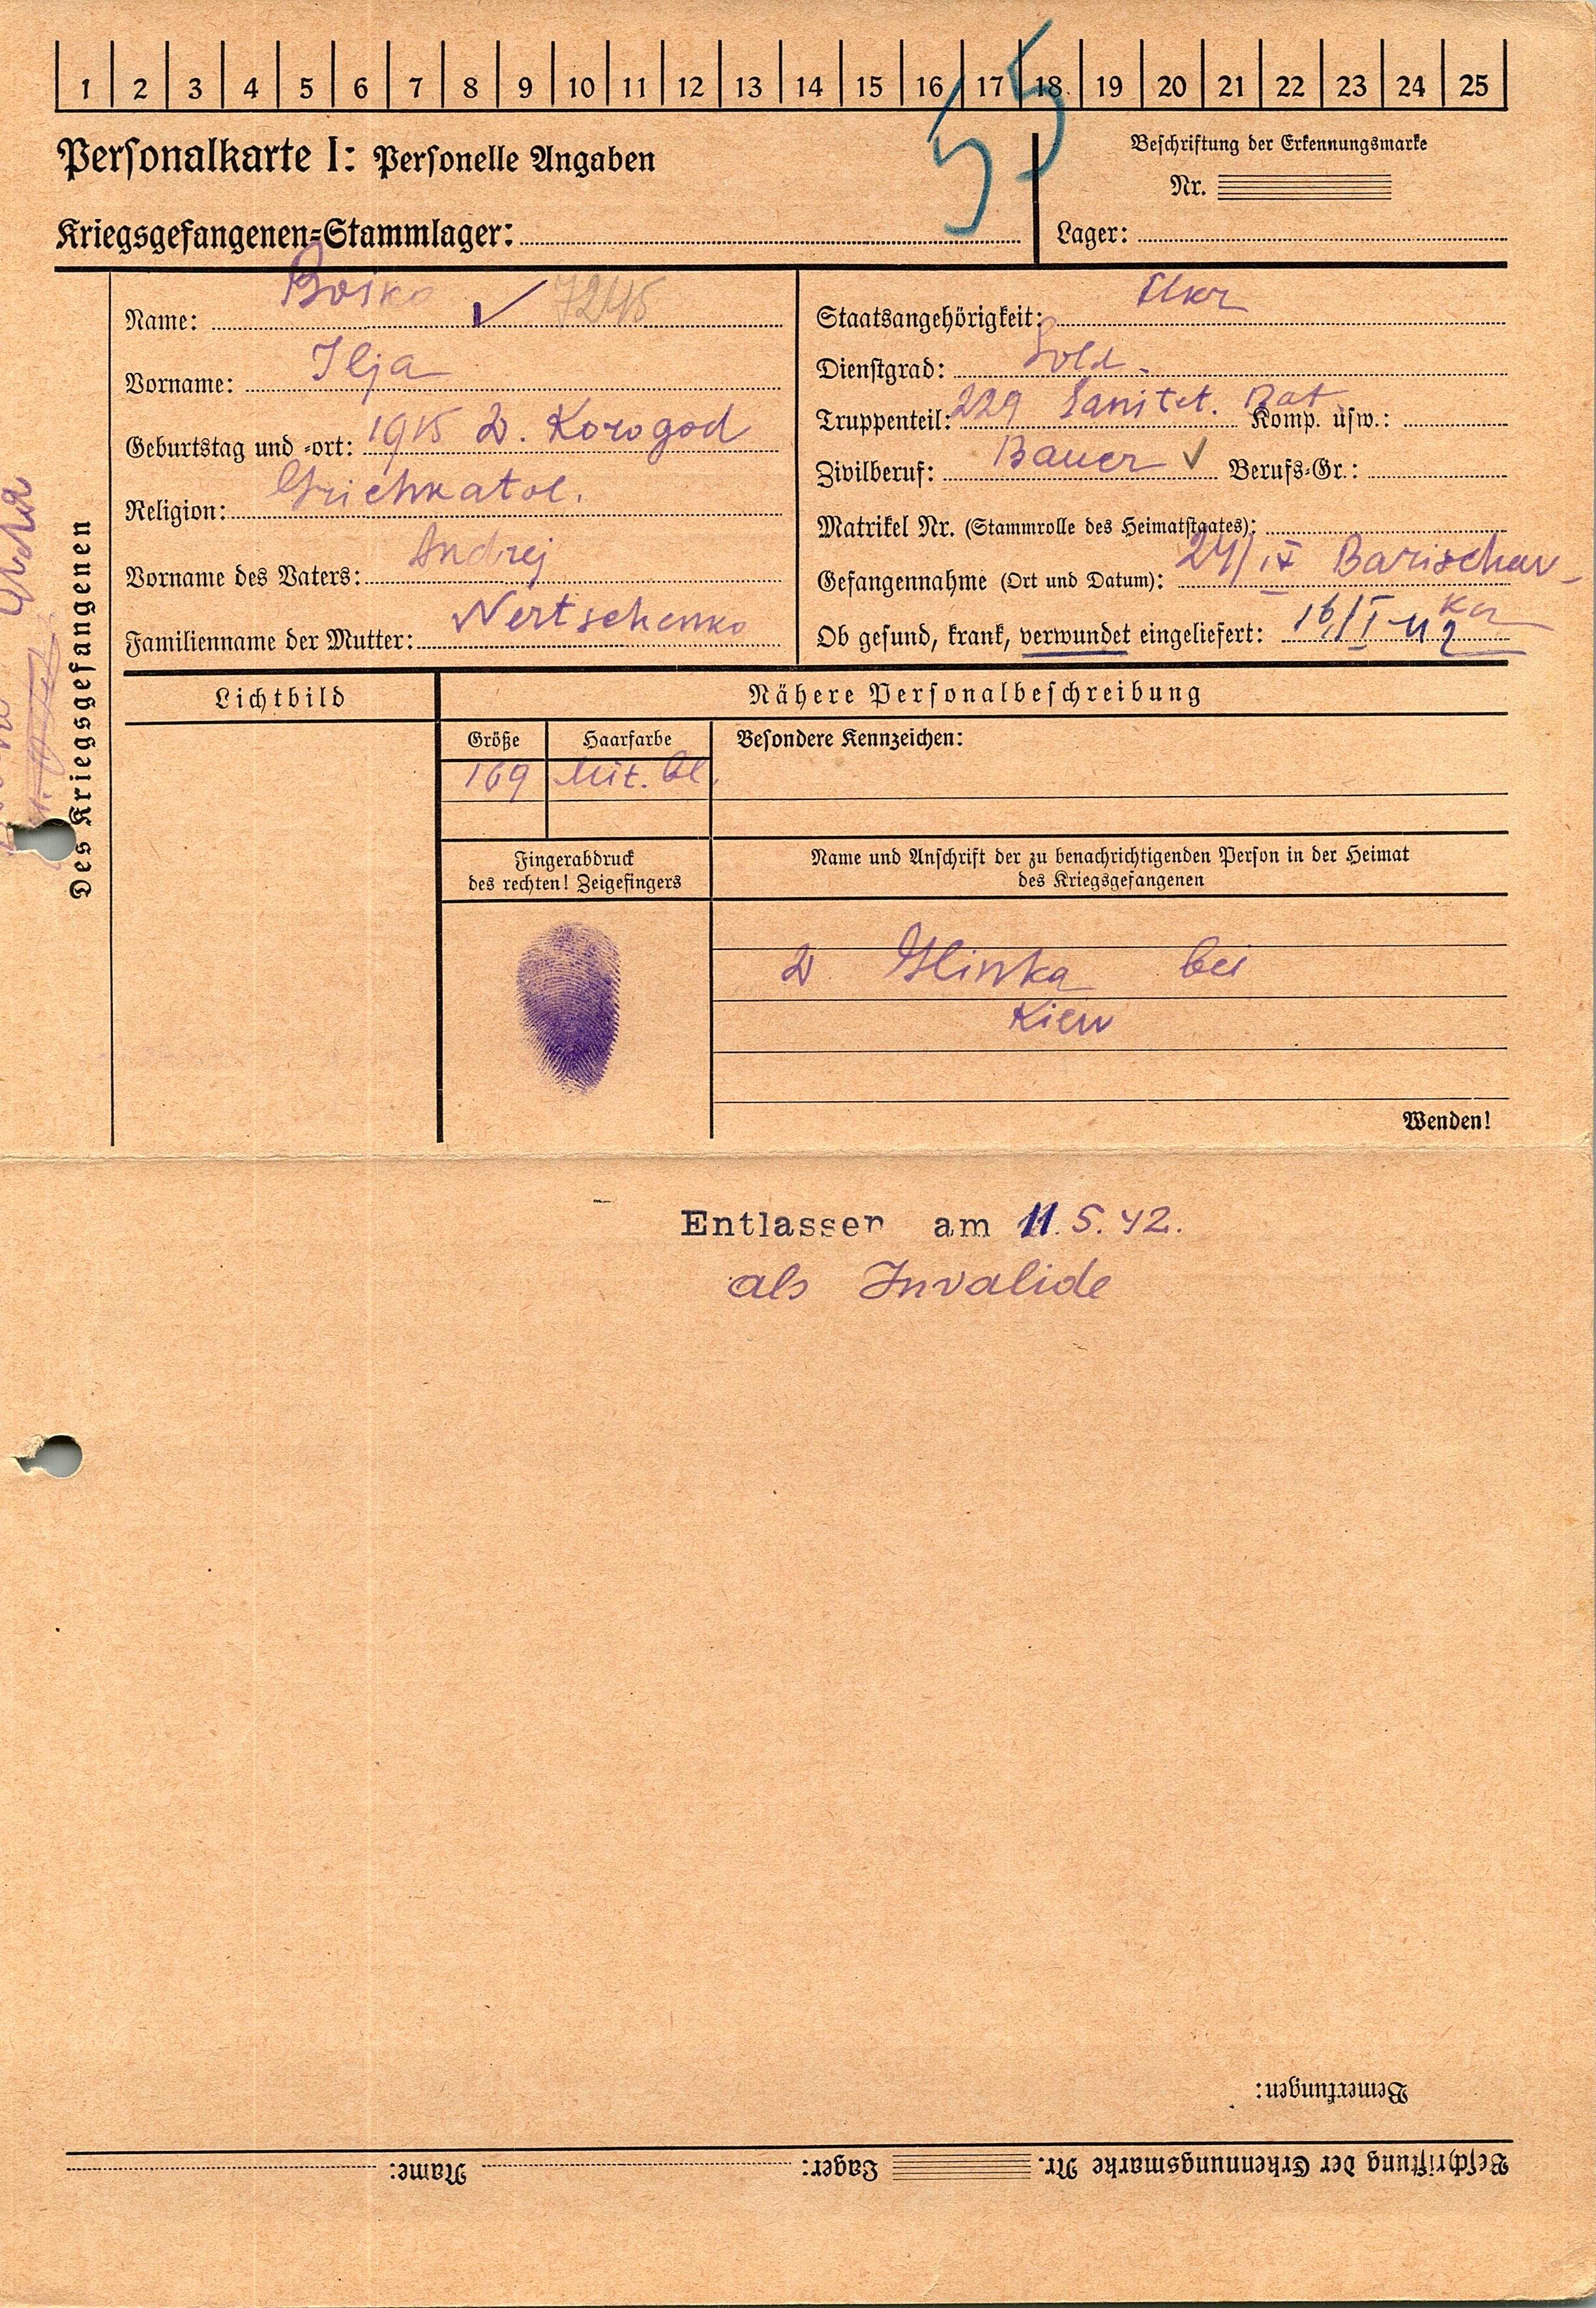 1 2 3 4 5 6 7 8 9 10 11 12 13 14 15 16 17 18 19 20 21 22 23 24 25
55
Personalkarte I: Personelle Angaben
Beschriftung der Erkennungsmarke
Nr.
Kriegsgefangenen-Stammlager:
Lager:
Des Kriegsgefangenen
Name: Boiko 7245
Vorname: Ilja
Geburtstag und -ort: 1915 D. Korogod
Religion: Grichkatol.
Vorname des Vaters: Andrej
Familienname der Mutter: Nertschenko
Staatsangehörigkeit: Ukr
Dienstgrad: Sold.
Truppenteil: 229 Sanitet. Bat Komp. usw.:
Zivilberuf: Bauer Berufs-Gr.:
Matrikel Nr. (Stammrolle des Heimatstaates):
Gefangennahme (Ort und Datum): 24/IX Barischew-
ka
Ob gesund, krank, verwundet eingeliefert: 16/I-42
Lichtbild
Nähere Personalbeschreibung
Größe Haarfarbe Besondere Kennzeichen:
169 Mit. bl.
Fingerabdruck
des rechten! Zeigefingers
Name und Anschrift der zu benachrichtigenden Person in der Heimat
des Kriegsgefangenen
D. Glinka bei
Kiew
Wenden!
Entlassen am 11.5.42.
als Invalide
Bemerkungen:
Beschriftung der Erkennungsmarke Nr. Lager: Name: